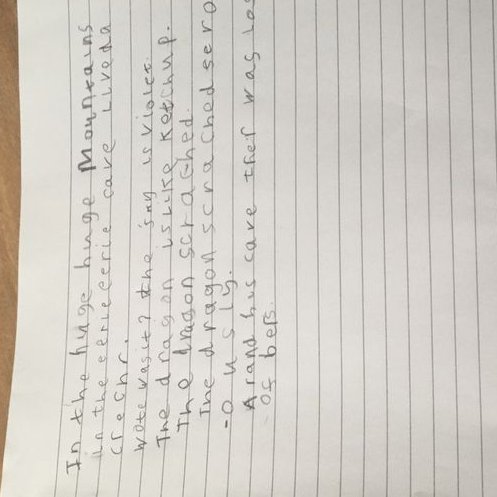 In the huge huge Mountains
in the eerie eerie cave lived a
crechr.
wote was it? the sky is violet.
The dragon is like ketchup.
The dragon scrached.
The dragon scrached sero
-ously.
Arand his cave their was los
of beps.